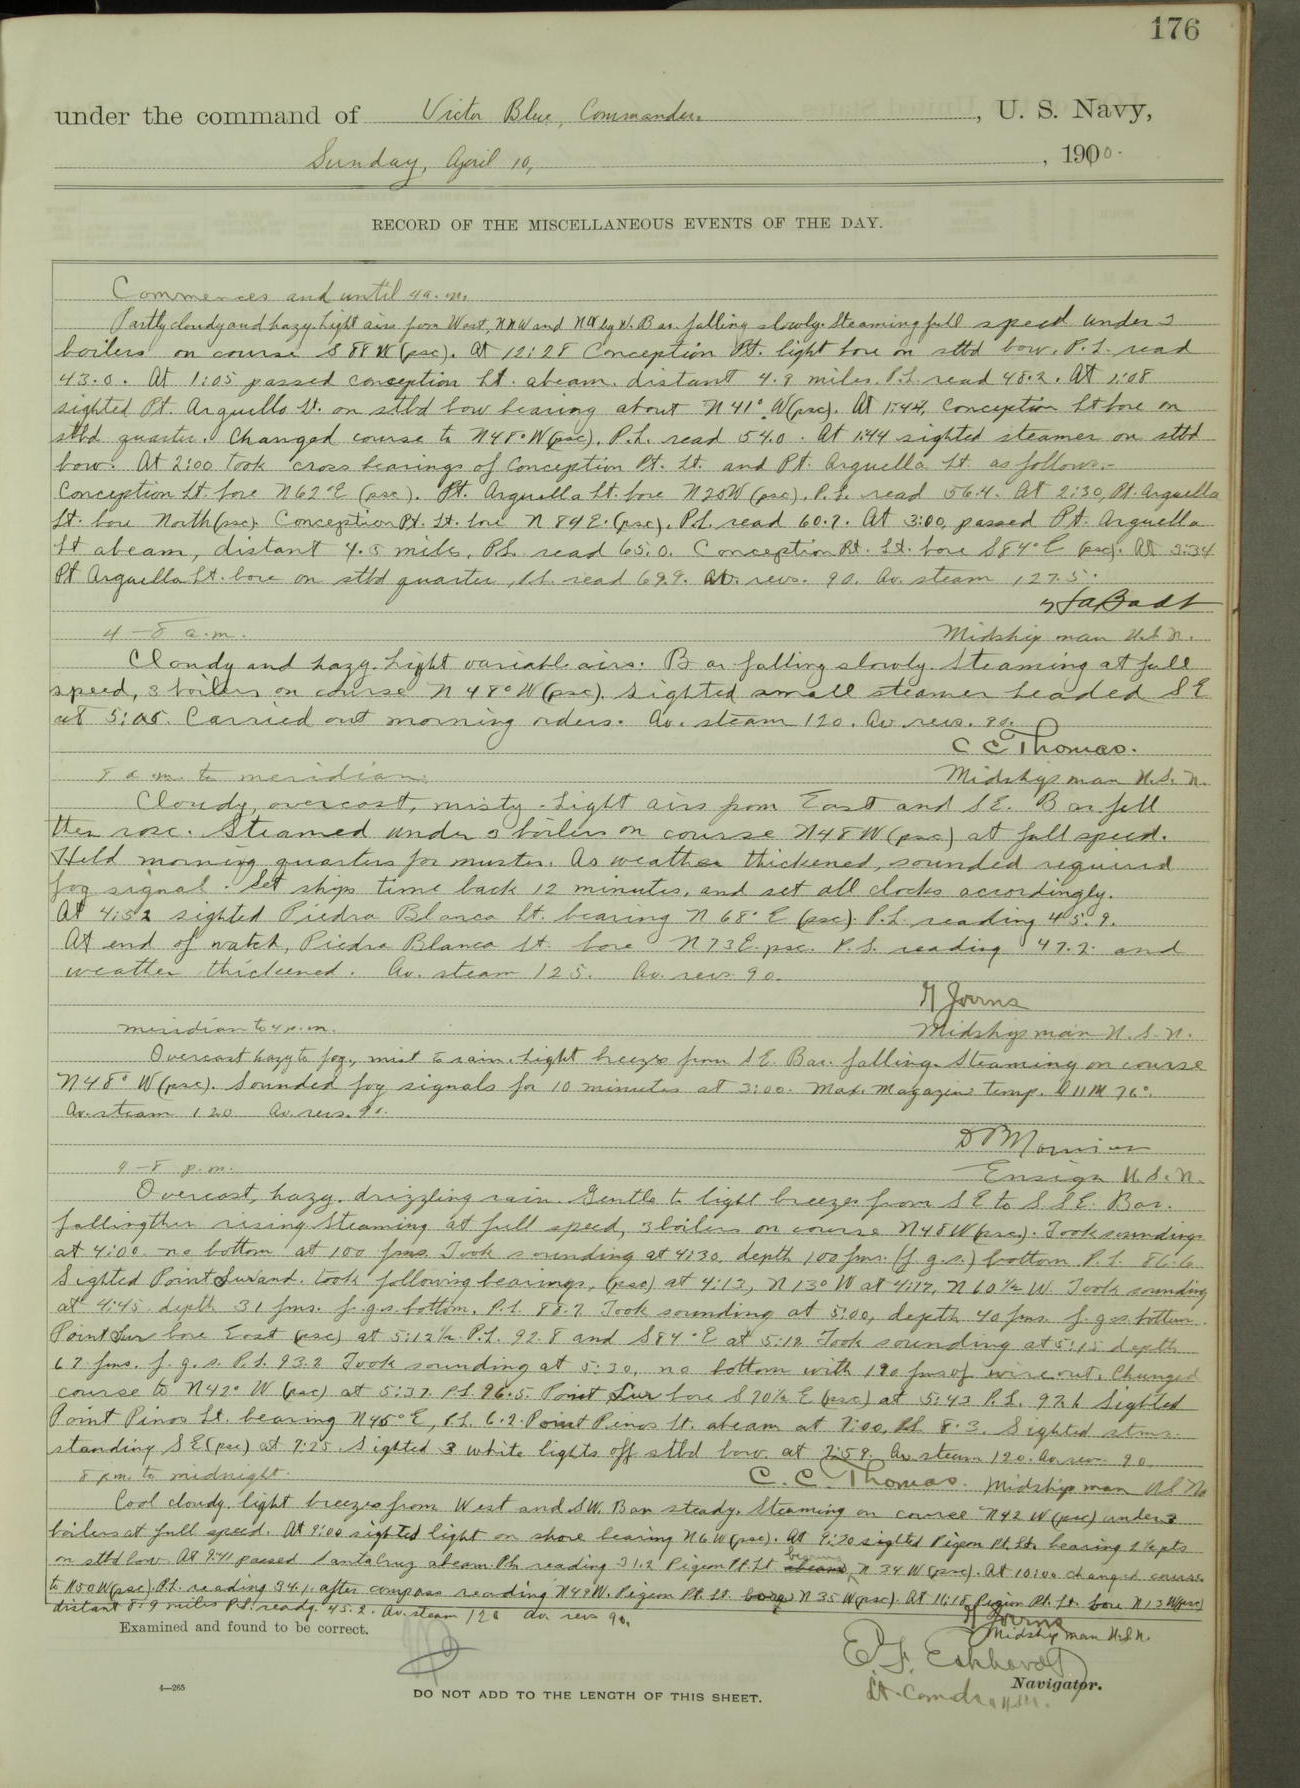 176
under the command of Victor Blue, Commander, U. S. Navy,
Sunday, April 10, 1910.
RECORD OF THE MISCELLANEOUS EVENTS OF THE DAY.
Commences and until 4 a.m.
Partly cloudy and hazy. Light airs from West, NNW and NW by N. Bar. falling slowly. Steaming full speed under 3
boilers on course S 88 W (psc). At 12:28 Conception Pt. light bore on stbd bow. P.L. read
43.0. At 1:05 passed conception Lt. abeam, distant 4.9 miles. P.L. read 48.2. At 1:08
sighted Pt. Arguello Lt. on stbd bow bearing about N 41° W (psc). At 1:44, Conception Lt bore on
stbd quarter. Changed course to N48°W (psc), P.L. read 54.0. At 1:44 sighted steamer on stbd
bow. At 2:00 took cross bearings of Conception Pt. Lt. and Pt. Arguella Lt. as follows:-
Conception Lt. bore N62°E (psc). Pt. Arguella Lt. bore N20W (psc), P.L. read 56.4. At 2:30, Pt. Arguella
Lt. bore North (psc). Conception Pt. Lt. bore N 84 E. (psc), P.L. read 60.7. At 3:00, passed Pt. Arguella
Lt abeam, distant 4.5 miles, P.L. read 65.0. Conception Pt. Lt. bore S84°E (psc). At 3:34
Pt Arguella Lt. bore on stbd quarter, P.L. read 69.9. Av. revs. 90. Av. steam 127.5.
LaBadt
4 - 8 a.m.
Midshipman U.S.N.
Cloudy and hazy. Light variable airs. Bar falling slowly. Steaming at full
speed, 3 boilers on course N 48° W (psc). Sighted small steamer headed SE
at 5:05. Carried out morning orders. Av. steam 120. Av revs. 90.
C C Thomas.
8 a.m. to meridian.
Midshipman U.S.N.
Cloudy, overcast, misty. Light airs from East and SE. Bar fell
then rose. Steamed under 3 boilers on course N48W (psc) at full speed.
Held morning quarters for muster. As weather thickened, sounded required
fog signal. Set ships time back 12 minutes, and set all clocks accordingly.
At 4:52 sighted Piedra Blanca Lt. bearing N 68° E (psc). P.L. reading 45.9.
At end of watch, Piedra Blanca Lt. bore N73E psc. P.L. reading 47.2 and
weather thickened. Av. steam 125. Av. revs 90.
Joerns
meridian to 4 p.m.
Midshipman U.S.N.
Overcast hazy to fog, mist to rain. Light breezes from SE Bar. falling. Steaming on course
N48° W (psc). Sounded fog signals for 10 minutes at 3:00. Max. Magazine temp. 76°.
Av. steam 120 Av. revs. 90.
4-8 p.m.
Ensign U.S.N.
Overcast, hazy, drizzling rain. Gentle to light breezes from SE to SSE. Bar.
falling then rising Steaming at full speed, 3 boilers on course N48W (psc). Took soundings
at 4:00 no bottom at 100 fms. Took sounding at 4:30, depth 100 fms. (f.g.s.) bottom P.L. 86.6
Sighted Point Sur and took following bearings, (psc) at 4:13, N 13° W at 4:17, N 60 ½ W. Took sounding
at 4:45 depth 31 fms. f.g.s. bottom. P.L. 88.7 Took sounding at 5:00, depth 40 fms. f.g.s. bottom.
Point Sur bore East (psc) at 5:12½ P.L. 92.8 and S84°E at 5:18. Took sounding at 5:15 depth
67 fms. f.g.s. P.L. 93.2 Took sounding at 5:30, no bottom with 190 fms of wire out. Changed
course to N42° W (psc) at 5:37 P.L. 96.5. Point Sur bore S 70½ E (psc) at 5:43 P.L. 97.6 Sighted
Point Pinos Lt. bearing N45°E, P.L. 6.2. Point Pinos Lt. abeam at 7:00, P.L. 8.3. Sighted stmr.
standing SE (psc) at 7:25. Sighted 3 white lights off stbd bow at 7:59. Av. steam 120. Av. rev. 90.
8 p.m. to midnight.
C. C. Thomas. Midshipman USN
Cool cloudy. light breezes from West and SW. Bar steady. Steaming on course N42 W (psc) under 3
boilers at full speed. At 9:00 sighted light on shore bearing N6W (psc). At 9:20 sighted Pigeon Pt. Lt. bearing 2½ pts
on stbd bow. At 9:41 passed Santa Cruz abeam. P.L. reading 31.2 Pigeon Pt. Lt bearing N 34 W (psc). At 10:00 changed course
to N50W (psc). P.L. reading 34.1, after compass reading N49W. Pigeon Pt. Lt. bore N 35 W (psc). At 11:15 Pigeon Pt. Lt. bore N13W (psc)
distant 8.9 miles P.L. readg. 45.2. Av. steam 120 Av. revs 90.
Joerns
Midshipman U.S.N.
Examined and found to be correct.
Lt. Comdr.
Navigator.
4—265
DO NOT ADD TO THE LENGTH OF THIS SHEET.